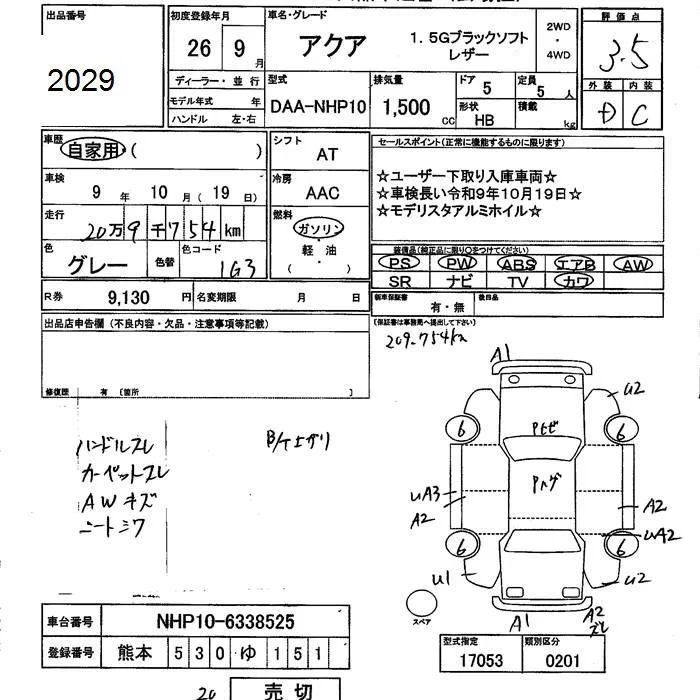 出品番号
2029
初度登録年月
26 9 月
車名・グレード
アクア
1.5Gブラックソフト
レザー
2WD
・
4WD
評価点
3.5
外装 内装
D C
ディーラー・並行
モデル年式 年
ハンドル 左・右
型式
DAA-NHP10
排気量
1,500 cc
ドア
5
形状
HB
定員
5 人
積載
kg
車歴
自家用・( )
車検
9 年 10 月(19 日)
走行
20万9千754km
色
グレー
色替
色コード
1G3
シフト
AT
冷房
AAC
燃料
ガソリン
軽油
( ・ )
セールスポイント(正常に機能するものに限ります)
☆ユーザー下取り入庫車両☆
☆車検長い令和9年10月19日☆
☆モデリスタアルミホイル☆
装備品(純正品に限り○をつけてください)
PS PW ABS エアB AW
SR ナビ TV カワ
R券 9,130 円
名変期限 月 日
新車保証書 有・無
後日品
(保証書は事務局へ提出して下さい)
209,754km
出品店申告欄(不良内容・欠品・注意事項等記載)
修復歴 有 〔箇所 〕
ハンドルスレ
カーペットスレ
AWキズ
シートシワ
B/Tエグリ
A1
U2
6
6
Pトビ
Pハゲ
UA3
A2
A2
UA2
6
6
U1
U2
スペア
A1
A2
ズレ
車台番号 NHP10-6338525
登録番号 熊本 530 ゆ 151
型式指定 類別区分
17053 0201
20
売切